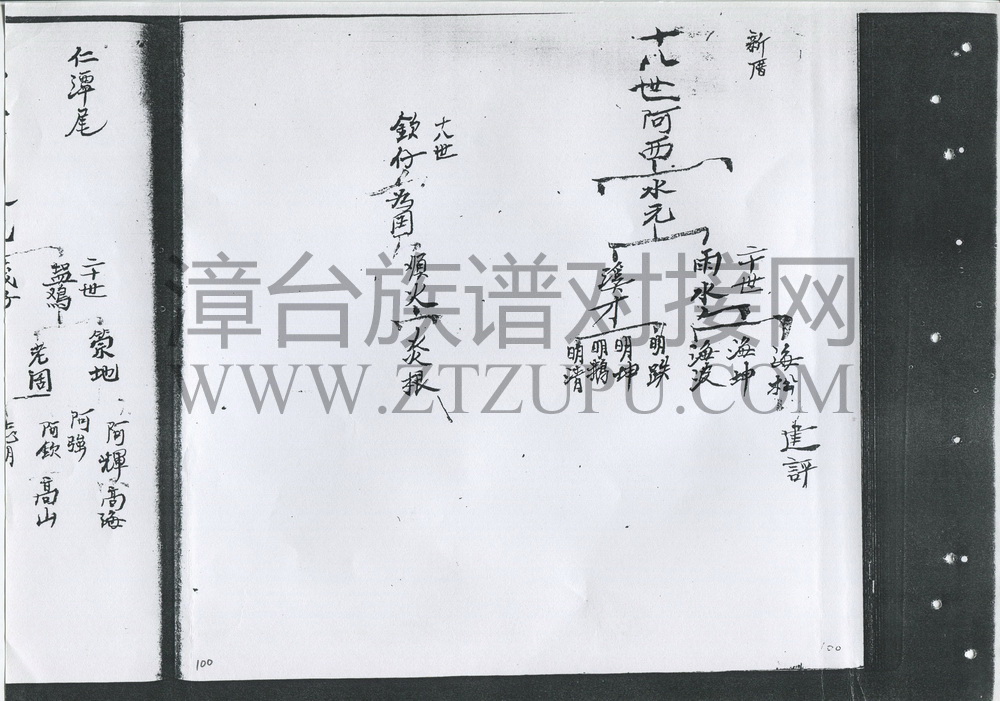 新厝
十八世阿西
水元
二十世
雨水
溪才
海松
海坤
海波
明跌
明坤
明鵝
明清
建評
十八世
欽仔
順火
炎根
仁潭尾
二十世
老固
阿輝
高海
阿強
阿欽
高山
漳台族谱对接网
WWW.ZTZUPU.COM
100
100